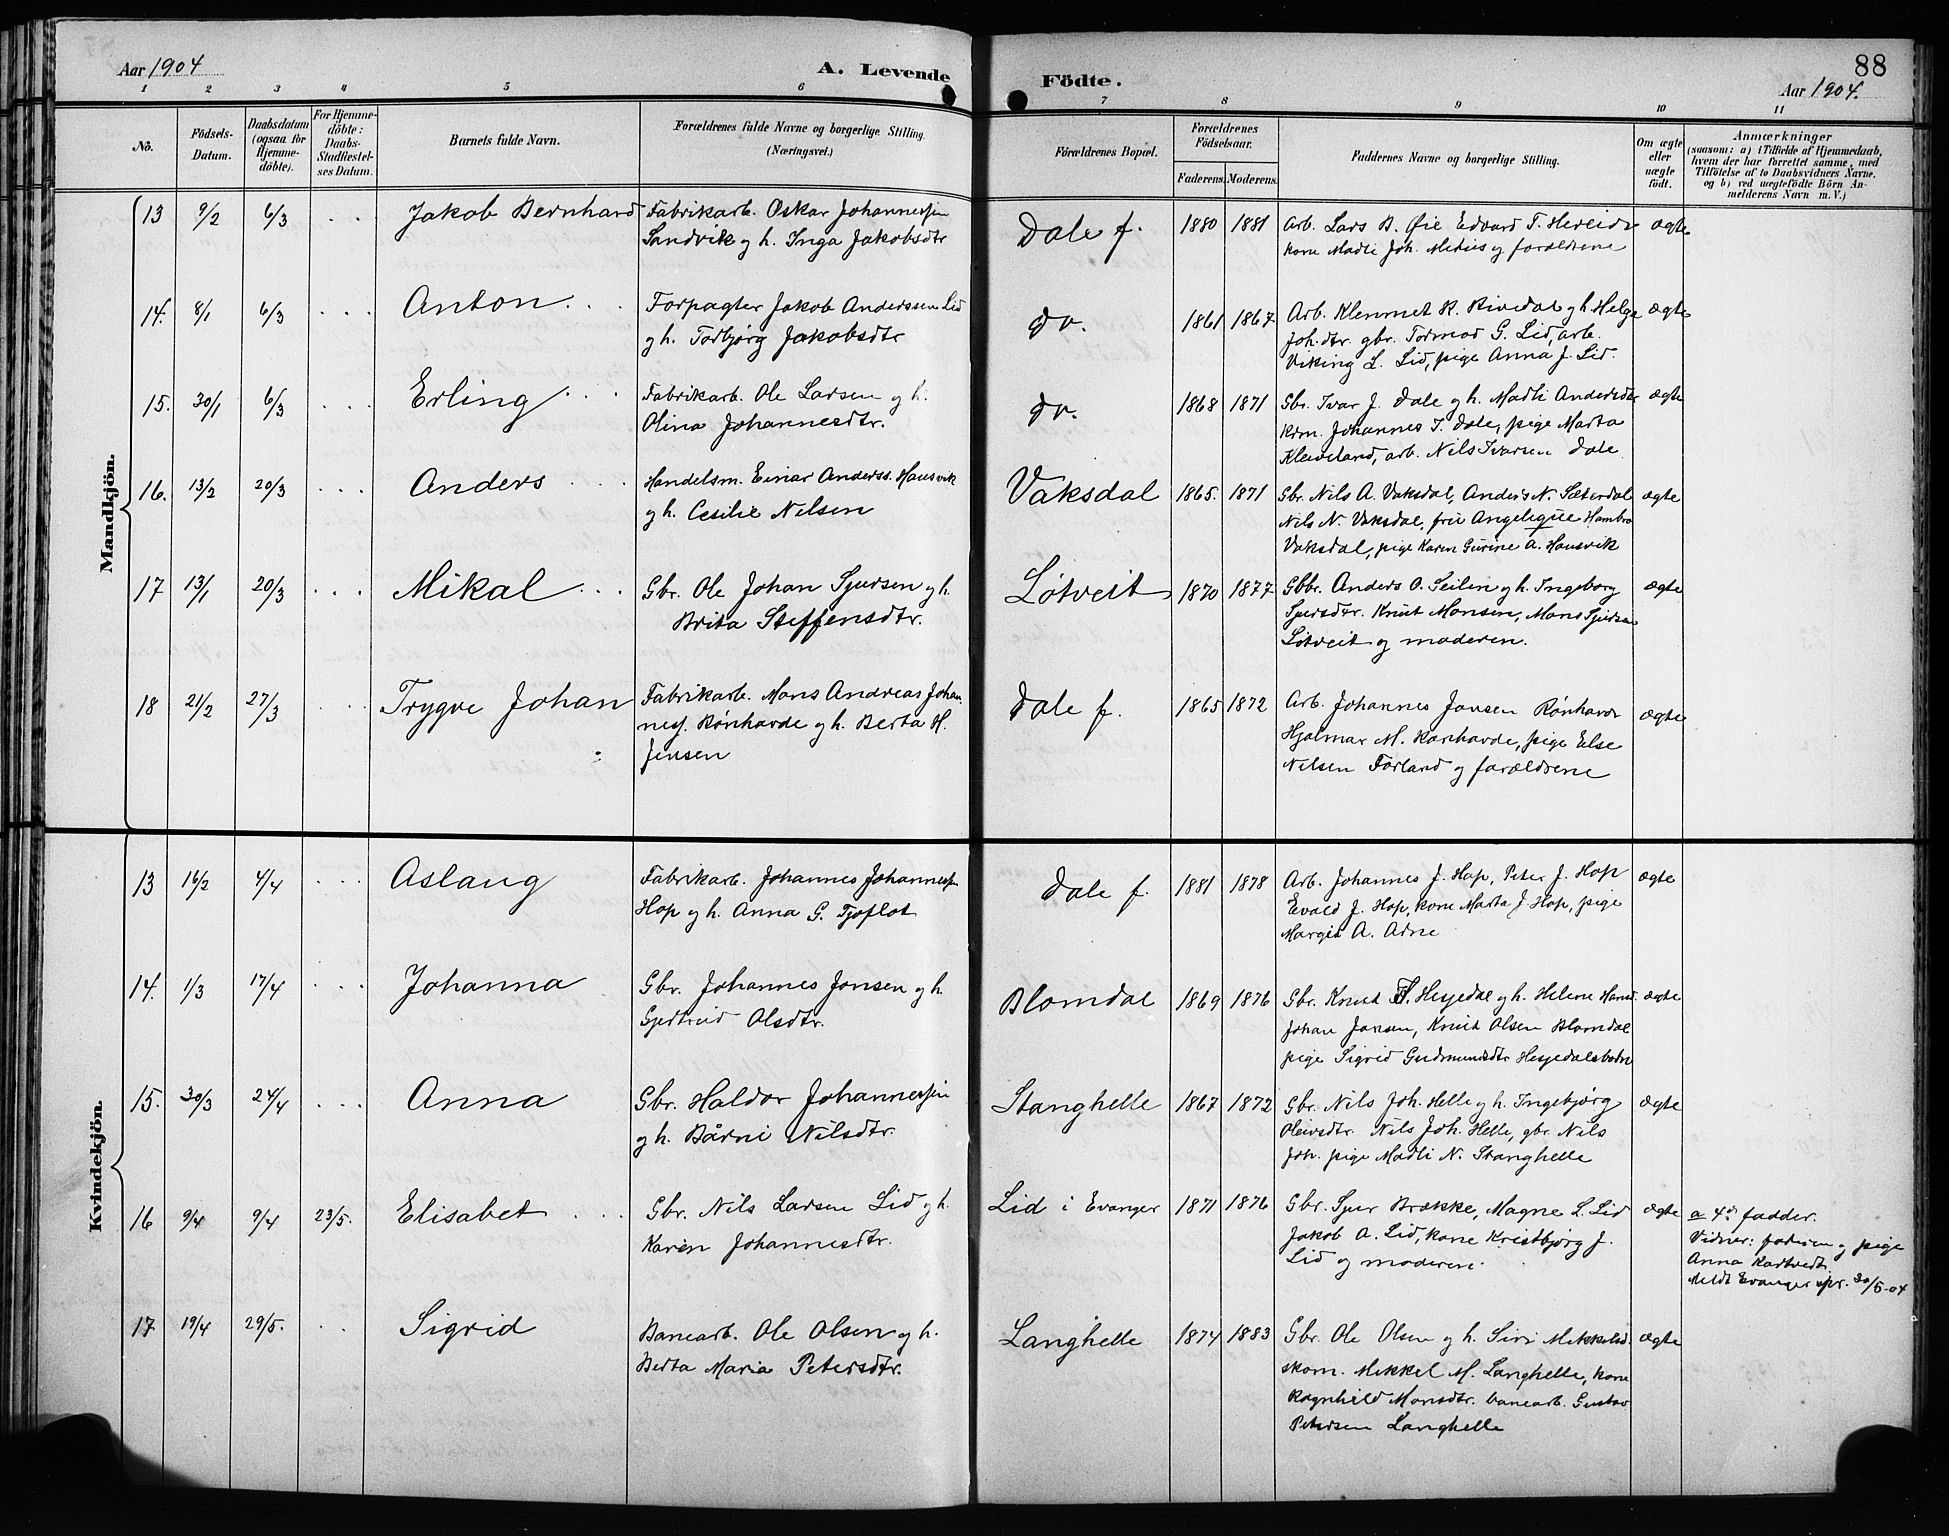 88
Aar 1904
A. Levende Födte.
Aar 1904.
1 2 3 4 5 6 7 8 9 10 11
No.
Födsels-
Datum.
Daabsdatum
(ogsaa for
Hjemme-
döbte).
For Hjemme-
döbte:
Daabs-
Stadfæstel-
ses Datum.
Barnets fulde Navn.
Forældrenes fulde Navne og borgerlige Stilling.
(Næringsvei.)
Forældrenes Bopæl.
Forældrenes
Födselsaar.
Faderens. Moderens.
Faddernes Navne og borgerlige Stilling.
Om ægte
eller
uægte
födt.
Anmærkninger
(saasom: a) i Tilfælde af Hjemmedaab,
hvem der har forrettet samme, med
Tilföielse af to Daabsvidners Navne,
og b) ved uægtefödte Börn An-
melderens Navn m.V.)
Mandkjön.
13 9/2 6/3 Jakob Bernhard
Fabrikarb. Oskar Johannessen
Sandvik og h. Inga Jakobsdtr
Dale f. 1880 1881
Arb. Lars B. Øie Edvard T. Hereide
kone Madli Joh. Metius og forældrene
ægte
14. 8/1 6/3 Anton
Forpagter Jakob Anderssen Lid
og h. Torbjørg Jakobsdtr
do. 1861 1867
Arb. Klemmet K. Rivedal og h Helga
Joh.dtr. gbr. Tormod G. Lid, arb.
Viking L. Lid, pige Anna J. Lid.
ægte
15. 30/1 6/3 Erling
Fabrikarb. Ole Larsen og h.
Olina Johannesdtr.
do. 1868 1871
Gbr. Ivar J. Dale og h. Madli Andersdtr
Kirm. Johannes I. Dale, pige Marta
Kleiveland, arb. Nils Ivarsen Dale
ægte
16. 13/2 20/3 Anders
Handelsm. Einar Anderss. Hausvik
og h. Cesilie Nilsen
Vaksdal 1865. 1871
Gbr. Nils A. Vaksdal, Anders N. Sæterdal
Nils N. Vaksdal, fru Angelique Hambro
Vaksdal, pige Karen Gurine A. Hausvik
ægte
17 13/1 20/3 Mikal
Gbr. Ole Johan Sjursen og h.
Brita Steffensdtr.
Løtveit 1870 1877
Gbr. Anders O. Seilen og h. Ingeborg
Sjursdtr. Knut Monsen, Mons Sjursen
Løtveit og moderen.
ægte
18 21/2 27/3 Trygve Johan
Fabrikarb. Mons Andreas Johan
nes. Rønhovde og h. Berta H.
Jensen
Dale f. 1865 1872
Arb. Johannes Jansen Rønhovde
Hjalmar M. Rønhovde, pige Else
Nilsen Førland og forældrene
ægte
Kvindekjön.
13 16/2 4/4 Aslaug
Fabrikarb. Johannes Johannessen
Hop og h. Anna G. Tjoflot
Dale f 1881 1878
Arb. Johannes J. Hop, Peter J. Hop
Evald J. Hop, kone Marta J. Hop, pige
Margit A. Arne
ægte
14. 1/3 17/4 Johanna
Gbr. Johannes Jonsen og h.
Gjertrud Olsdtr.
Blomdal 1869 1876
Gbr. Knut J. Hesjedal og h. Helene Hansd.
Johan Jonsen, Knut Olsen Blomdal
pige Sigrid Gudmundsdtr Hesjedalsbotn
ægte
15. 30/3 24/4 Anna
Gbr. Haldor Johannessen
og h. Bårni Nilsdtr.
Stanghelle 1867 1872
Gbr. Nils Joh. Helle og h. Ingebjørg
Oleivsdtr. Nils Joh. Helle, gbr. Nils
Joh. pige Madli N. Stanghelle
ægte
16 9/4 9/4 23/5. Elisabet
Gbr. Nils Larsen Lid og h.
Karen Johannesdtr.
Lid i Evanger 1871 1876
Gbr. Sjur Brække, Magne L. Lid
Jakob A. Lid, kone Kristbjørg J.
Lid og moderen.
ægte
a 4de fadder.
Vidner: faderen og pige
Anna Kartvedt.
Meldt Evanger spr. 30/5-04
17 19/4 29/5. Sigrid
Banearb. Ole Olsen og h.
Berta Maria Petersdtr.
Langhelle 1874 1883
Gbr. Ole Olsen og h. Siri Mikkelsd.
skom. Mikkel M. Langhelle, kone
Ragnhild Monsdtr. banearb. Gustav
Petersen Langhelle
ægte